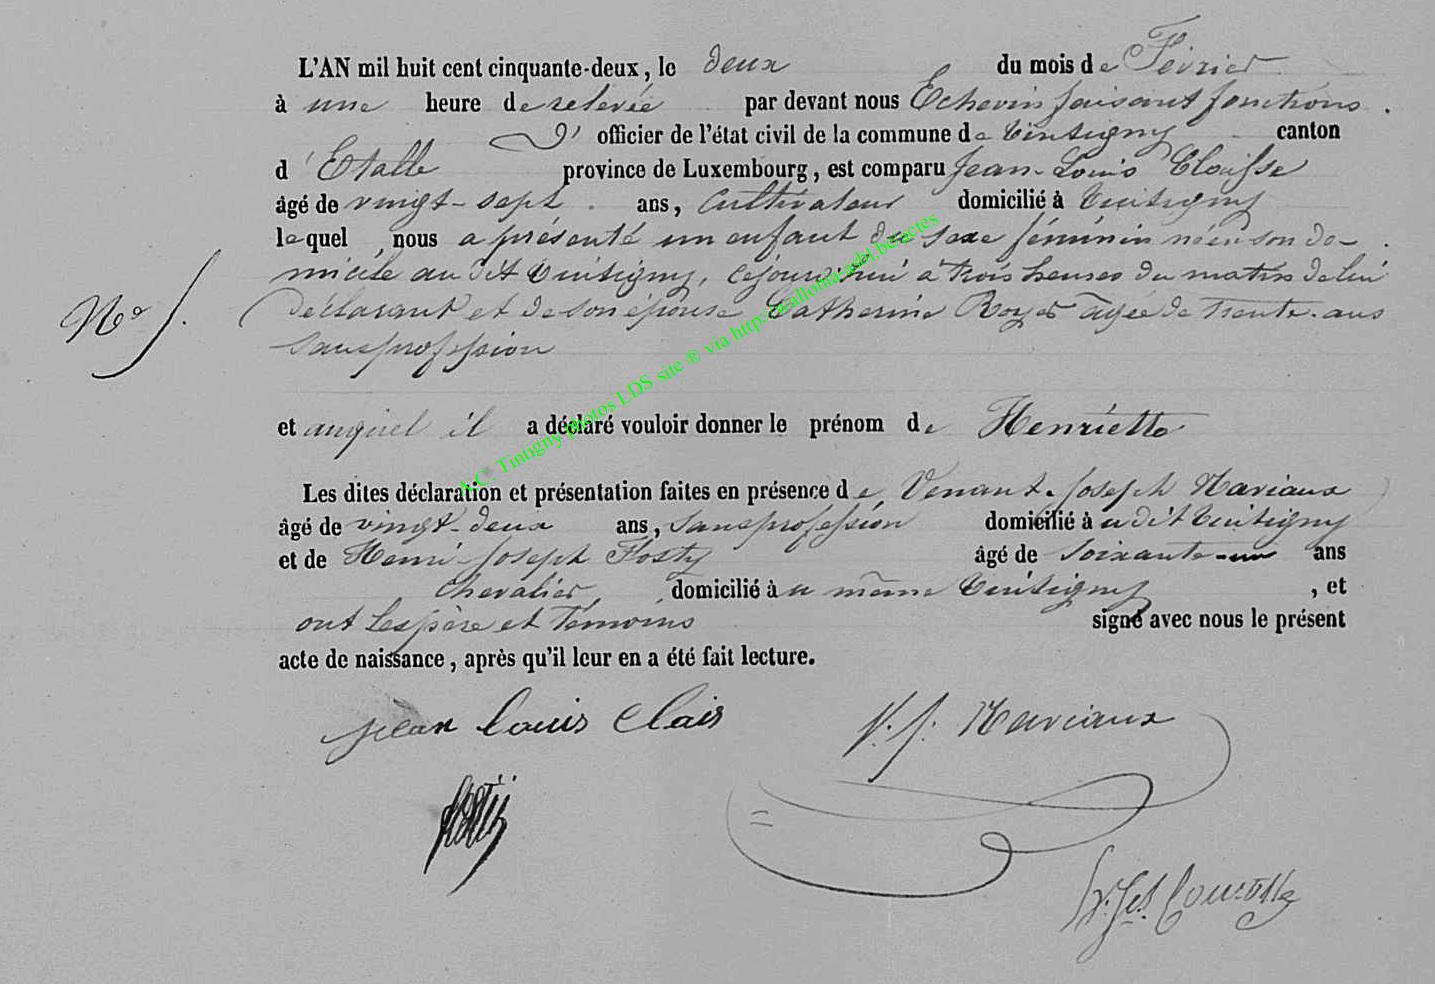 L'AN mil huit cent cinquante-deux, le deux du mois de Février
à une heure de relevée par devant nous Echevin faisant fonctions
d' officier de l'état civil de la commune de Tintigny canton
d'Etalle province de Luxembourg, est comparu Jean-Louis Claisse
âgé de vingt-sept ans, Cultivateur domicilié à Tintigny
lequel nous a présenté un enfant du sexe féminin né en son do-
micile au dit Tintigny, cejourd'hui à trois heures du matin de lui
Nº 5. déclarant et de son épouse Catherine Royer agée de Trente ans
sans profession
et auquel il a déclaré vouloir donner le prénom de Henriette
Les dites déclaration et présentation faites en présence de Venant-Joseph Mariaux
âgé de vingt-deux ans, sans profession domicilié à u dit Tintigny
et de Henri-Joseph Fosty âgé de soixante-un ans
Chevalier domicilié à u même Tintigny, et
ont Les père et Témoins signé avec nous le présent
acte de naissance, après qu'il leur en a été fait lecture.
jean louis Clais V. J. Mariaux
A.C. Tintigny photos LDS site ® via